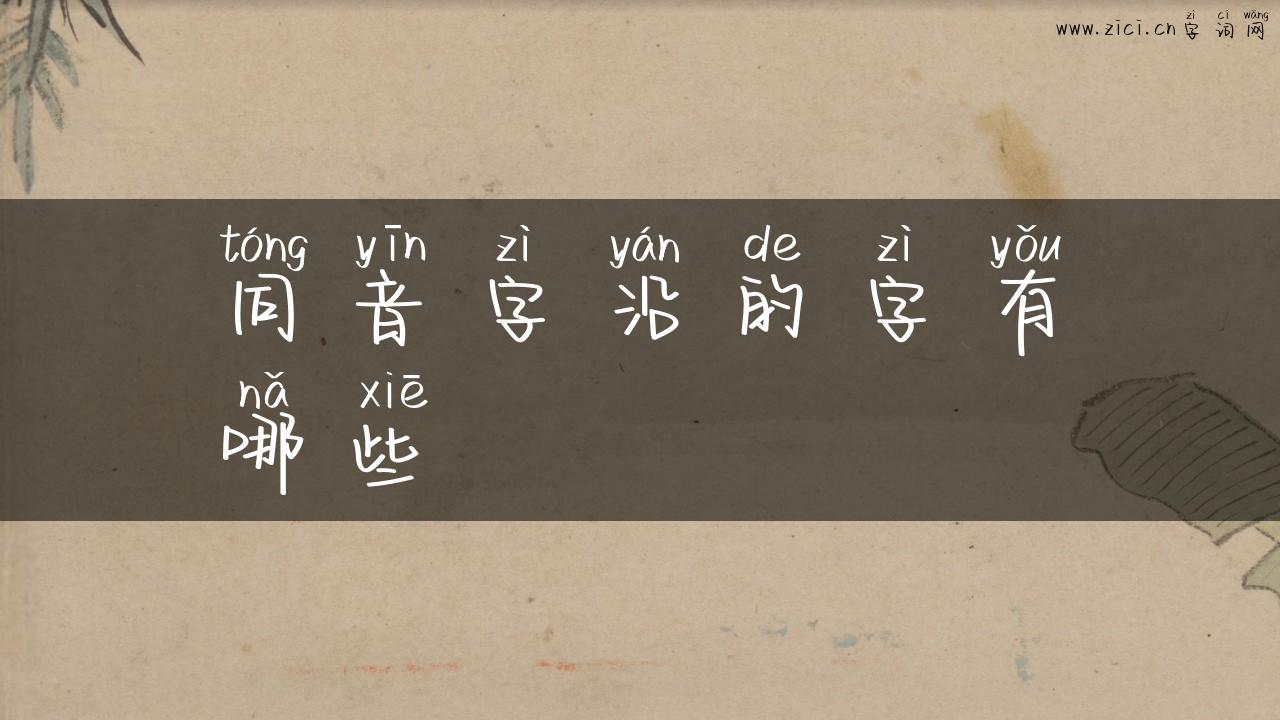 zì cí wǎng
www.zici.cn 字 词 网
tóng yīn zì yán de zì yǒu
同 音 字 沿 的 字 有
nǎ xiē
哪 些